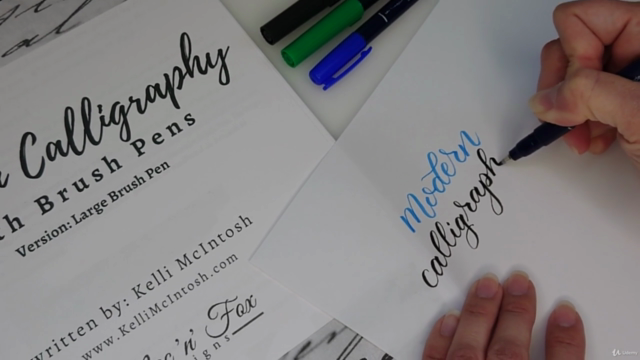 Calligraphy
Brush Pens
Version: Large Brush Pen
written by: Kelli McIntosh
www.KelliMcIntosh.com
'n' Fox
Modern
calligraph